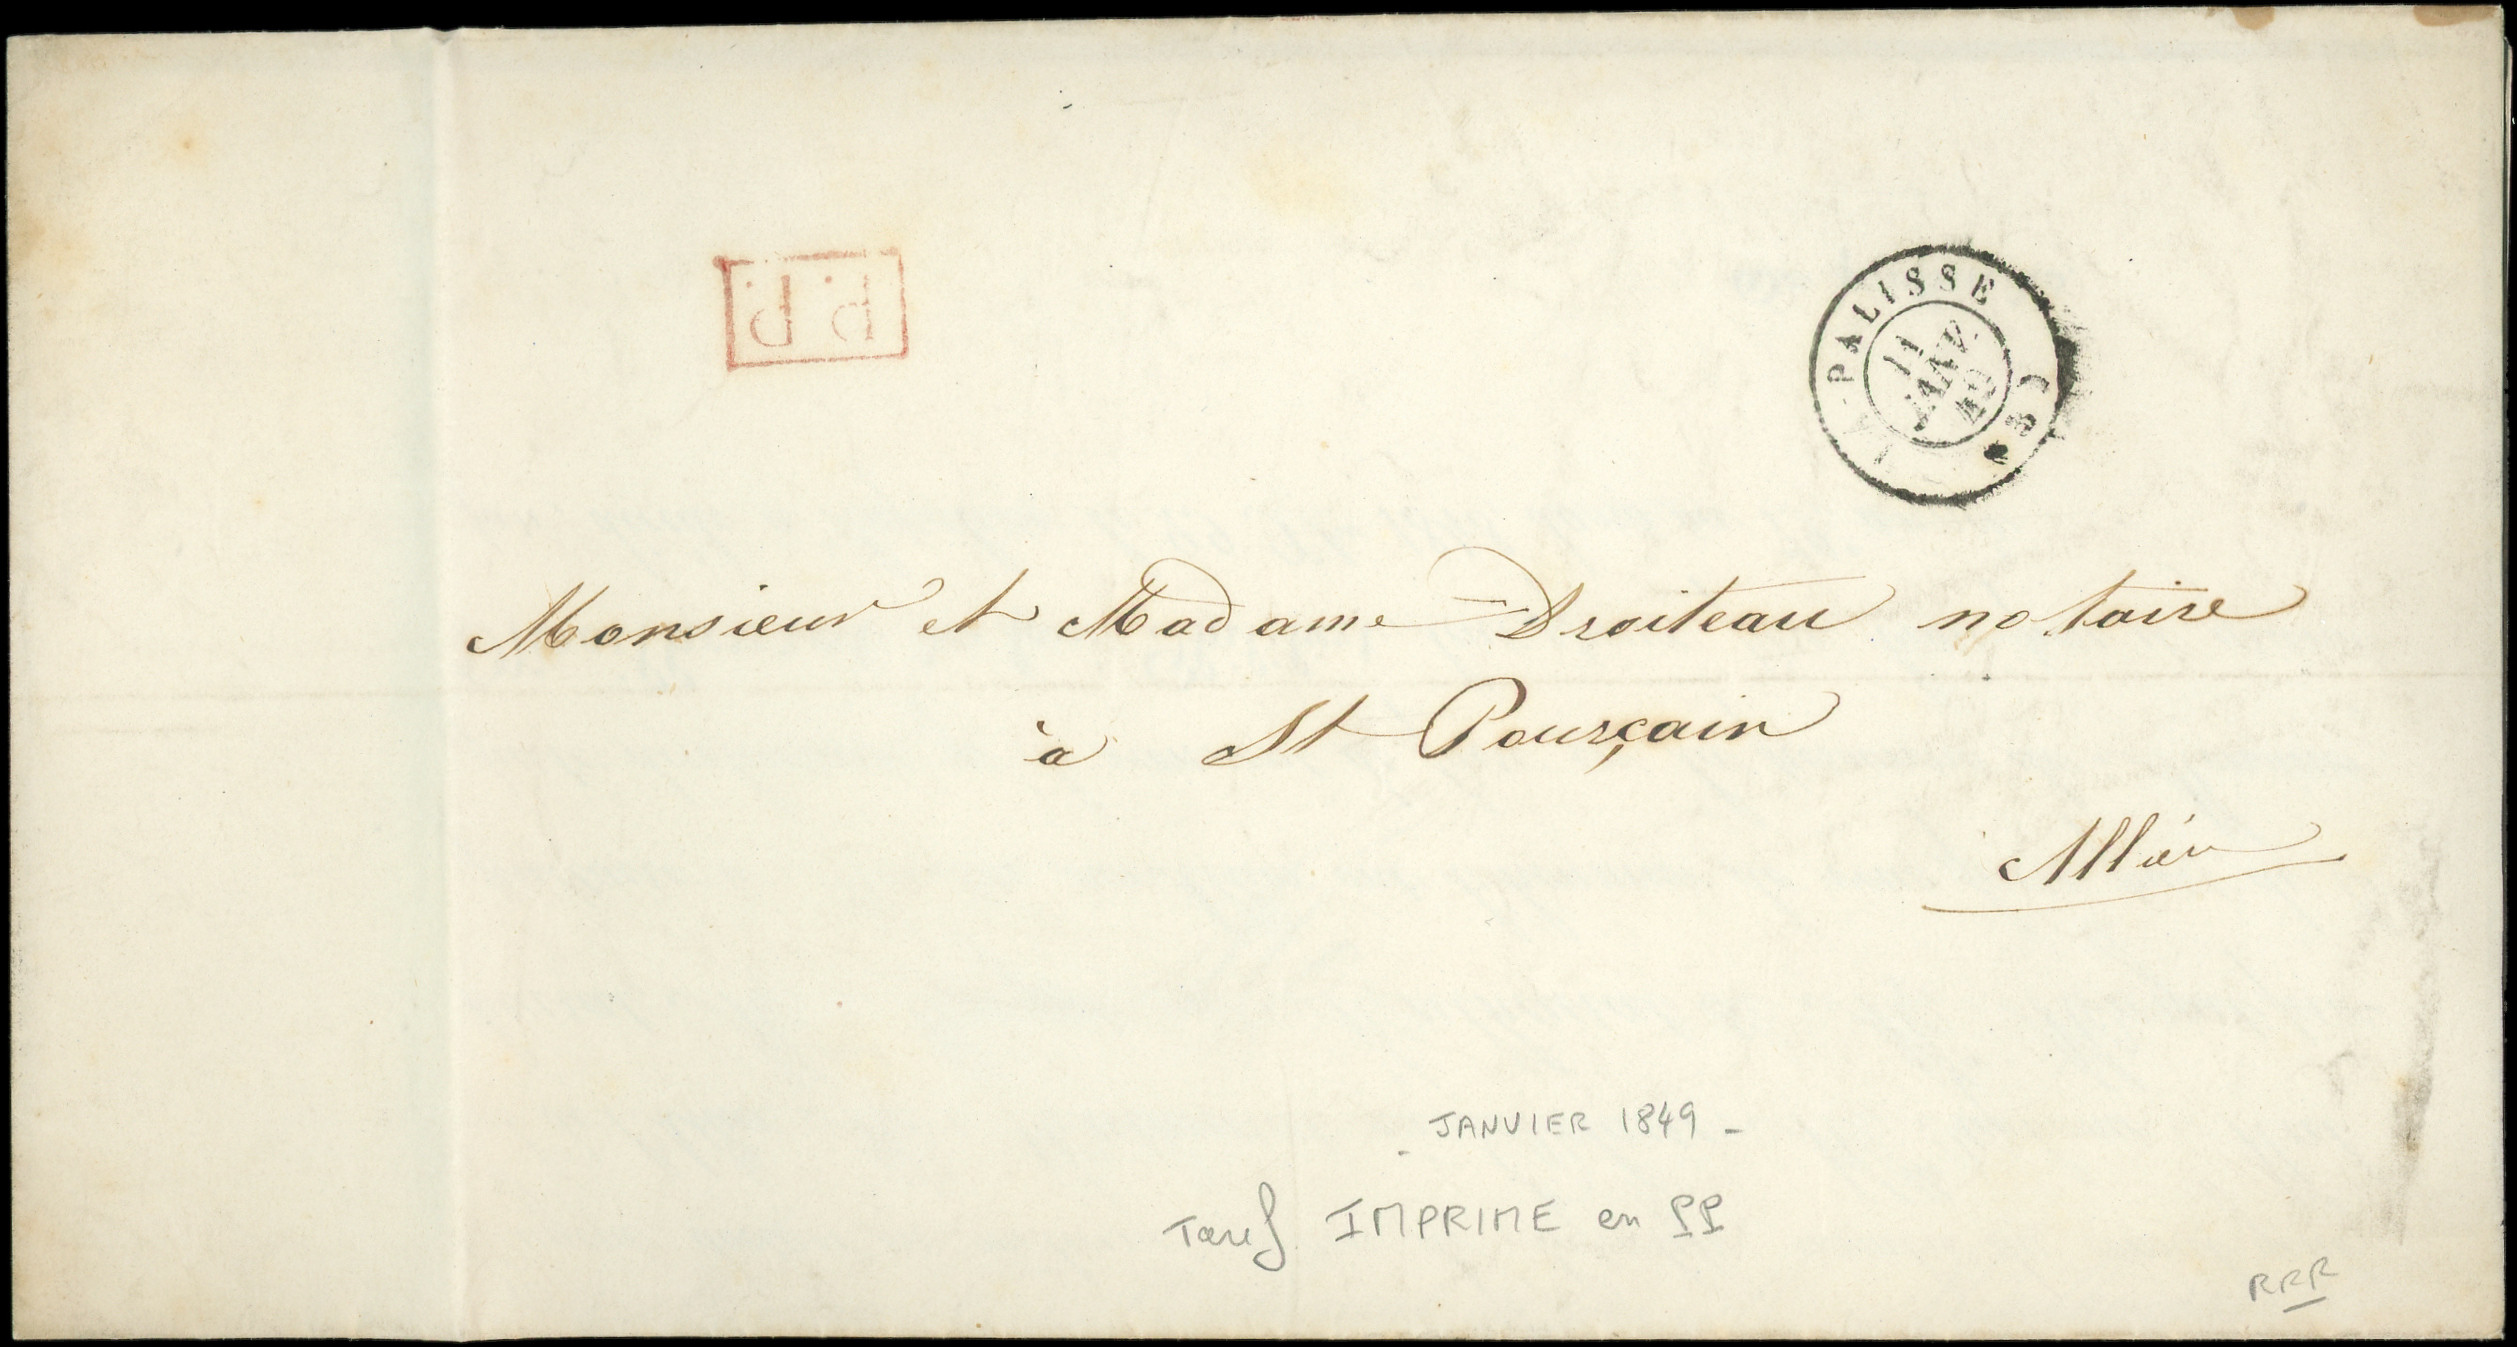 P. P.
LA-PALISSE
11
JANV.
49
(3)
Monsieur et Madame Droiteau notaire
à St Pourçain
Allier
- JANVIER 1849 -
Tarif IMPRIME en PP
RRR